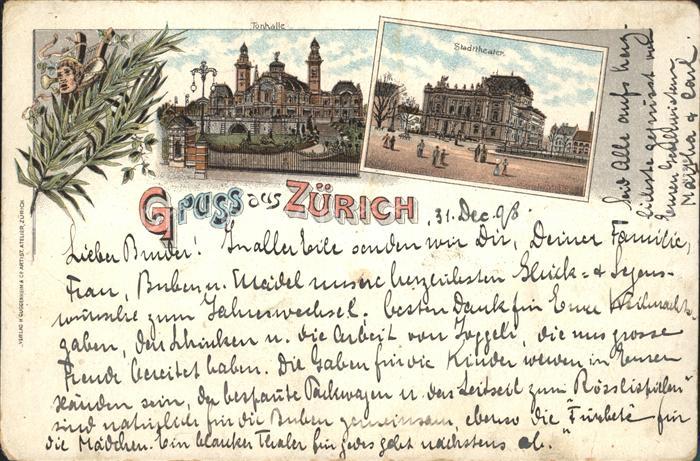 Tonhalle
Stadttheater
Gruss aus ZÜRICH
31. Dec. 98
Lieber Bruder! In aller Eile senden wir Dir, Deiner Familie,
Frau, Buben u. Meidel unsere herzlichsten Glück- & Segens-
wünsche zum Jahreswechsel. besten Dank für Eure Weihnachts-
gaben, den Schinken u. die Arbeit von Joggeli, die uns grosse
Freude bereitet haben. Die Gaben für die Kinder werden in Euren
Händen sein, der bespannte Packwagen u. das Leitseil zum Rösslispielen
sind natürlich für die Buben gemeinsam, ebenso die "Fürbete" für
die Mädchen. Ein blanker Thaler für jedes geht nächstens ab.
Seid Alle aufs herz-
lichste gegrüsst von
Euren
& Carl
VERLAG H. GUGGENHEIM & Co ARTIST. ATELIER, ZÜRICH